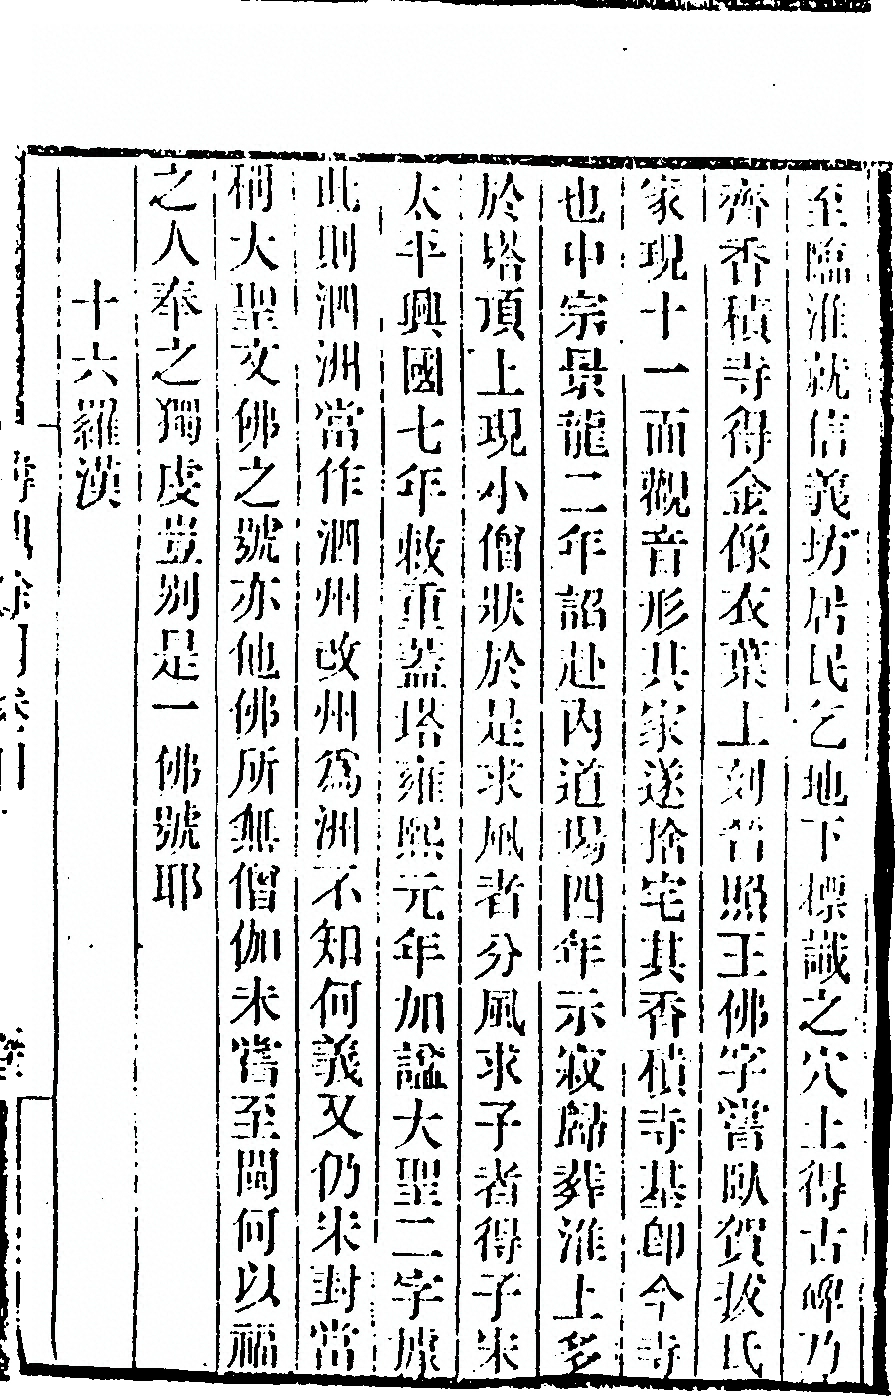 至臨淮就信義坊居民乞地下標識之穴土得古碑乃
齊香積寺得金像衣葉上刻普照王佛字嘗臥賀拔氏
家現十一面觀音形其家遂捨宅其香積寺基即今寺
也中宗景龍二年詔赴內道場四年示寂歸葬淮上多
於塔頂上現小僧狀於是求風者分風求子者得子宋
太平興國七年敕重蓋塔雍熙元年加諡大聖二字據
此則泗洲當作泗州改州為洲不知何義又仍宋封當
稱大聖文佛之號亦他佛所無僧伽未嘗至閩何以福
之人奉之獨虔豈別是一佛號耶
十六羅漢